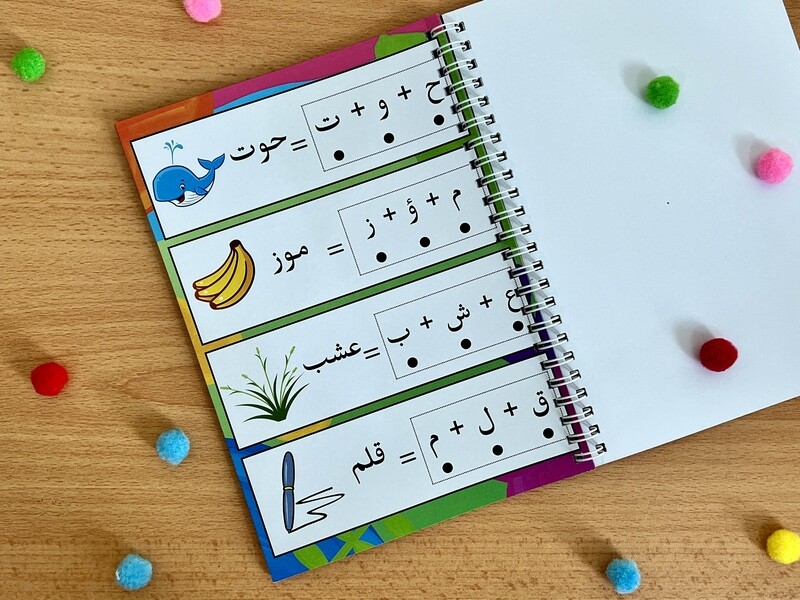 ح + و + ت = حوت
م + ؤ + ز = موز
ع + ش + ب = عشب
ق + ل + م = قلم